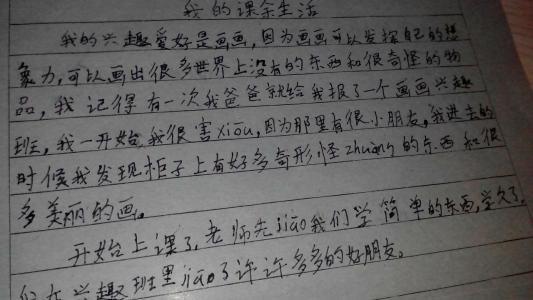 我的课余生活
我的兴趣爱好是画画,因为画画可以发挥自己的想
象力,可以画出很多世界上没有的东西和很奇怪的物
品,我记得有一次我爸爸就给我报了一个画画兴趣
班,我一开始我很害xiōu,因为那里有很小朋友,我进去的
时候我发现柜子上有好多奇形怪zhuàng的东西和很
多美丽的画。
开始上课了,老师先jiāo我们学简单的东西,学久了,
们在兴趣班里jiāo了许许多多的好朋友。